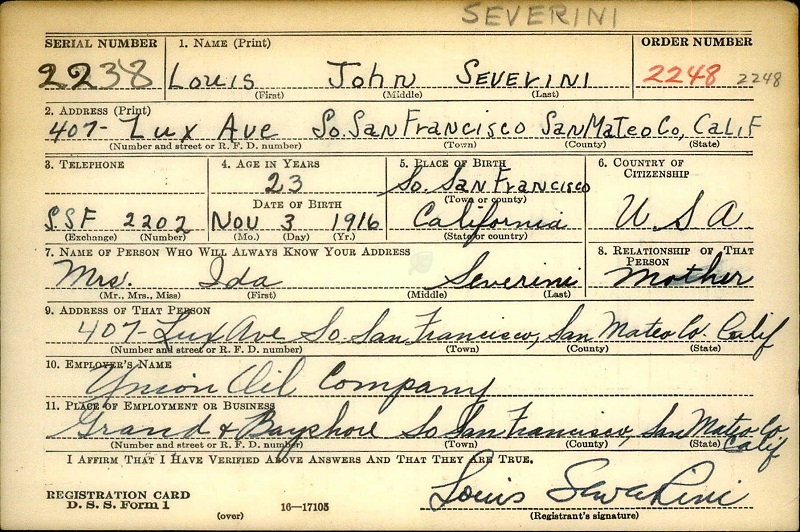 SEVERINI
SERIAL NUMBER 1. NAME (Print) ORDER NUMBER
2238 LOUIS JOHN SEVERINI 2248 2248
(First) (Middle) (Last)
2. ADDRESS (Print)
407- LUX AVE SO. SAN FRANCISCO SAN MATEO CO, CALIF
(Number and street or R. F. D. number) (Town) (County) (State)
3. TELEPHONE 4. AGE IN YEARS 5. PLACE OF BIRTH 6. COUNTRY OF CITIZENSHIP
23 So. San Francisco
(Town or county)
DATE OF BIRTH
SSF 2202 NOV 3 1916 California U S A.
(Exchange) (Number) (Mo.) (Day) (Yr.) (State or country)
7. NAME OF PERSON WHO WILL ALWAYS KNOW YOUR ADDRESS 8. RELATIONSHIP OF THAT PERSON
Mrs. Ida Severini Mother
(Mr., Mrs., Miss) (First) (Middle) (Last)
9. ADDRESS OF THAT PERSON
407- Lux Ave So San Francisco, San Mateo Co. Calif
(Number and street or R. F. D. number) (Town) (County) (State)
10. EMPLOYER'S NAME
Union Oil Company
11. PLACE OF EMPLOYMENT OR BUSINESS
Grand & Bayshore So San Francisco, San Mateo Co Calif
(Number and street or R. F. D. number) (Town) (County) (State)
I AFFIRM THAT I HAVE VERIFIED ABOVE ANSWERS AND THAT THEY ARE TRUE.
REGISTRATION CARD Louis Severini
D. S. S. Form 1 16—17105
(over) (Registrant's signature)